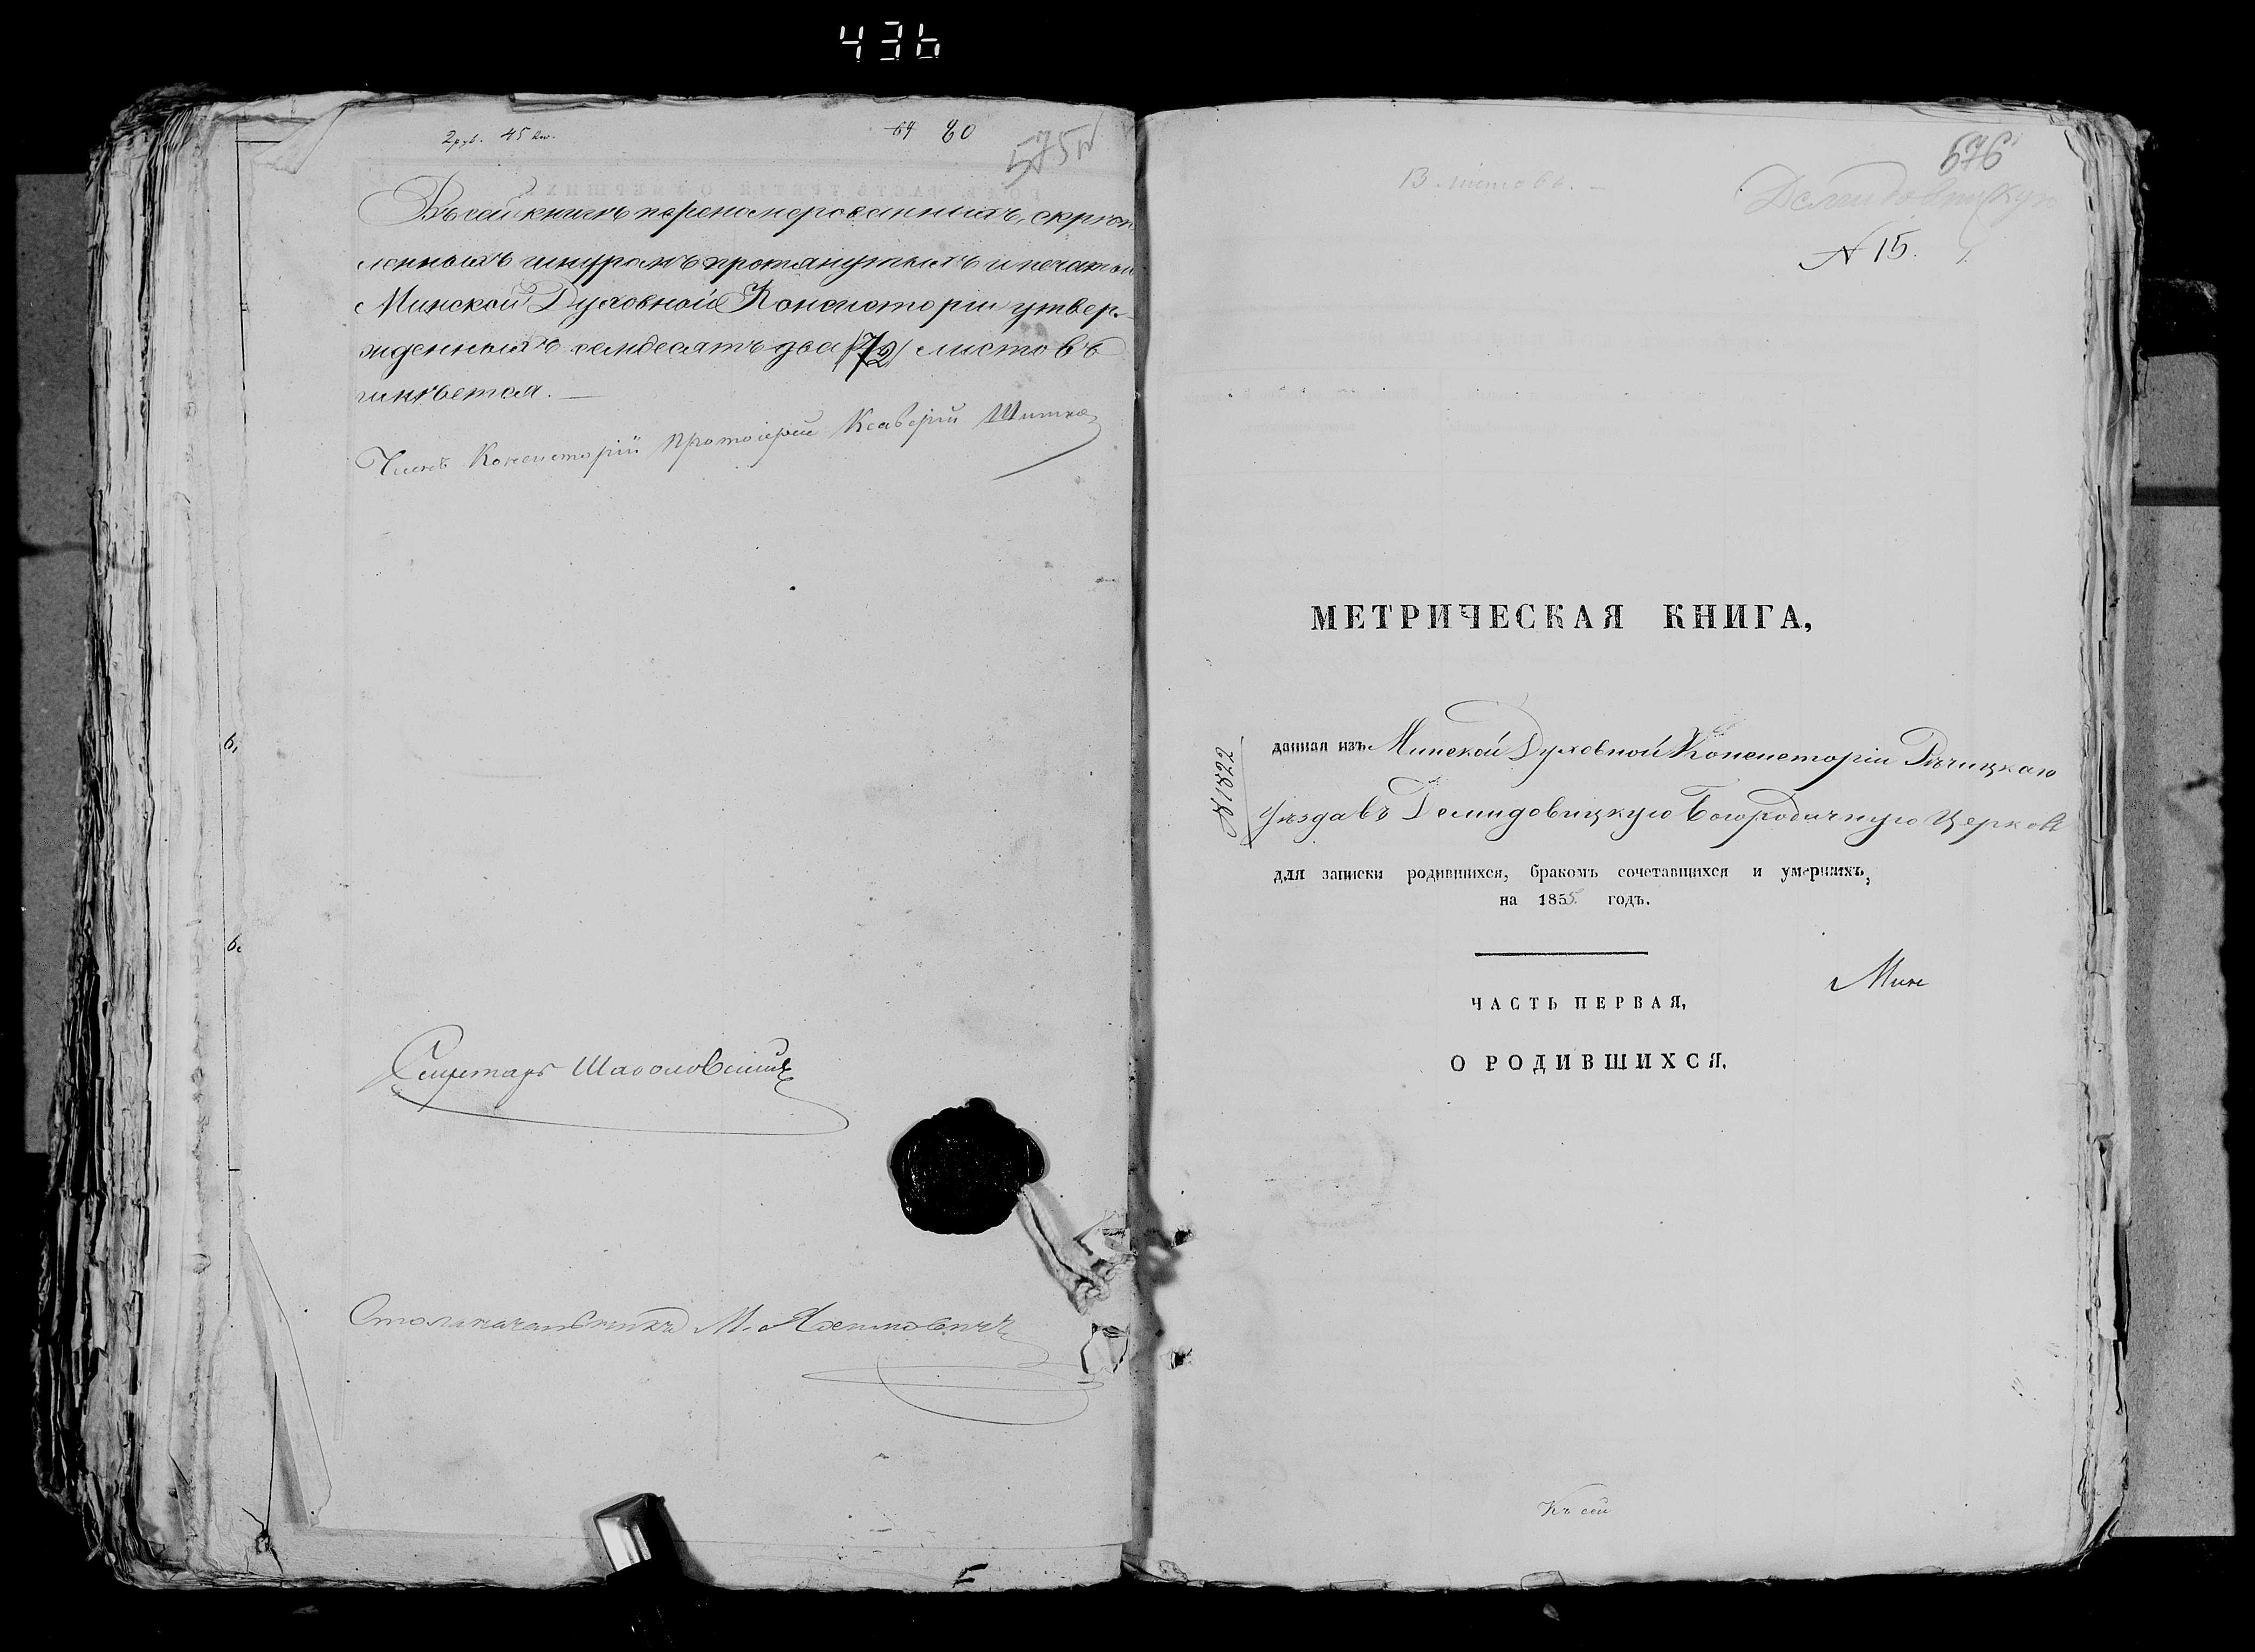 436
2 руб. 45 коп.
64 80
575
Въ сей книгѣ переномерованныхъ, скрѣп
ленныхъ шнуромъ протянутыхъ и печатью
Минской Духовной Консисторіи утвер-
жденныхъ семдесятъ два /72/ листовъ
имѣется.
Членъ Консисторіи Протоіерей Ксаверій
Секретарь
Столоначальникъ М.
576
13 листовъ.
Демидовицкую
№ 15.
МЕТРИЧЕСКАЯ КНИГА,
№ 1322
данная изъ Минской Духовной Консисторіи Рѣчицкаго
уѣзда въ Демидовицкую Богородичную Церковь
для записки родившихся, бракомъ сочетавшихся и умершихъ,
на 1855 годъ.
ЧАСТЬ ПЕРВАЯ,
О РОДИВШИХСЯ.
Мин
Къ сей